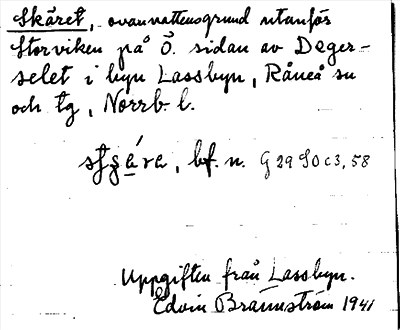 Skäret, ovanvattensgrund utanför
Storviken på Ö. sidan av Deger-
selet i byn Lassbyn, Råneå sn
och tg, Norrb. l.
bf. n. G 29 SO c 3, 58
Uppgiften från Lassbyn.
Edvin Brännström 1941